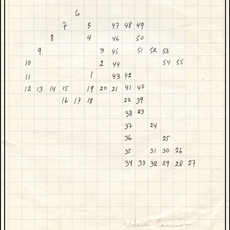 6
7 5 47 48 49
8 4 46 50
9 3 45 51 52 53
10 2 44 54 55
11 1 43 42
12 13 14 15 19 20 21 41 40
16 17 18 22 39
38 23
37 24
36 25
35 31 30 26
34 33 32 29 28 27